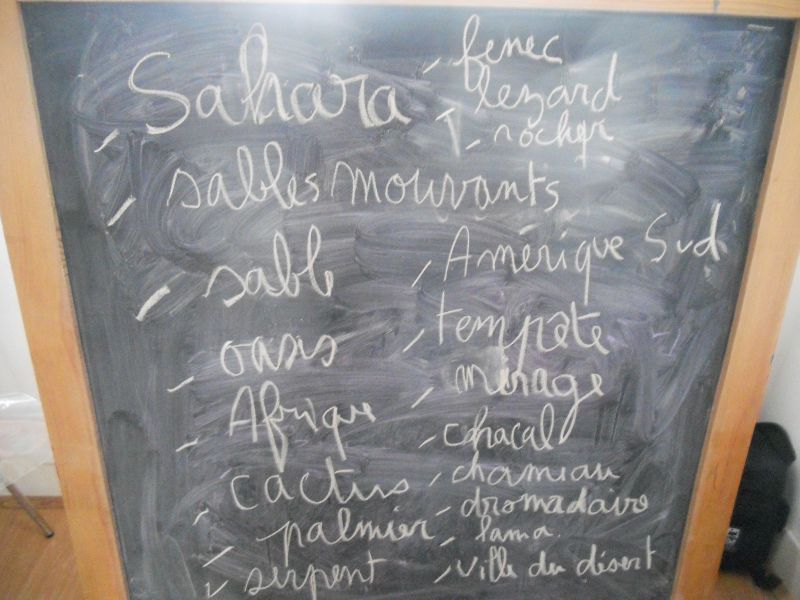 - Sahara
- sables mouvants
- sable
- oasis
- Afrique
- cactus
- palmier
- serpent
- fenec
lezard
- rocher
- Amérique Sud
- tempête
- mirage
- chacal
- chameau
- dromadaire
- lama
- ville du désert